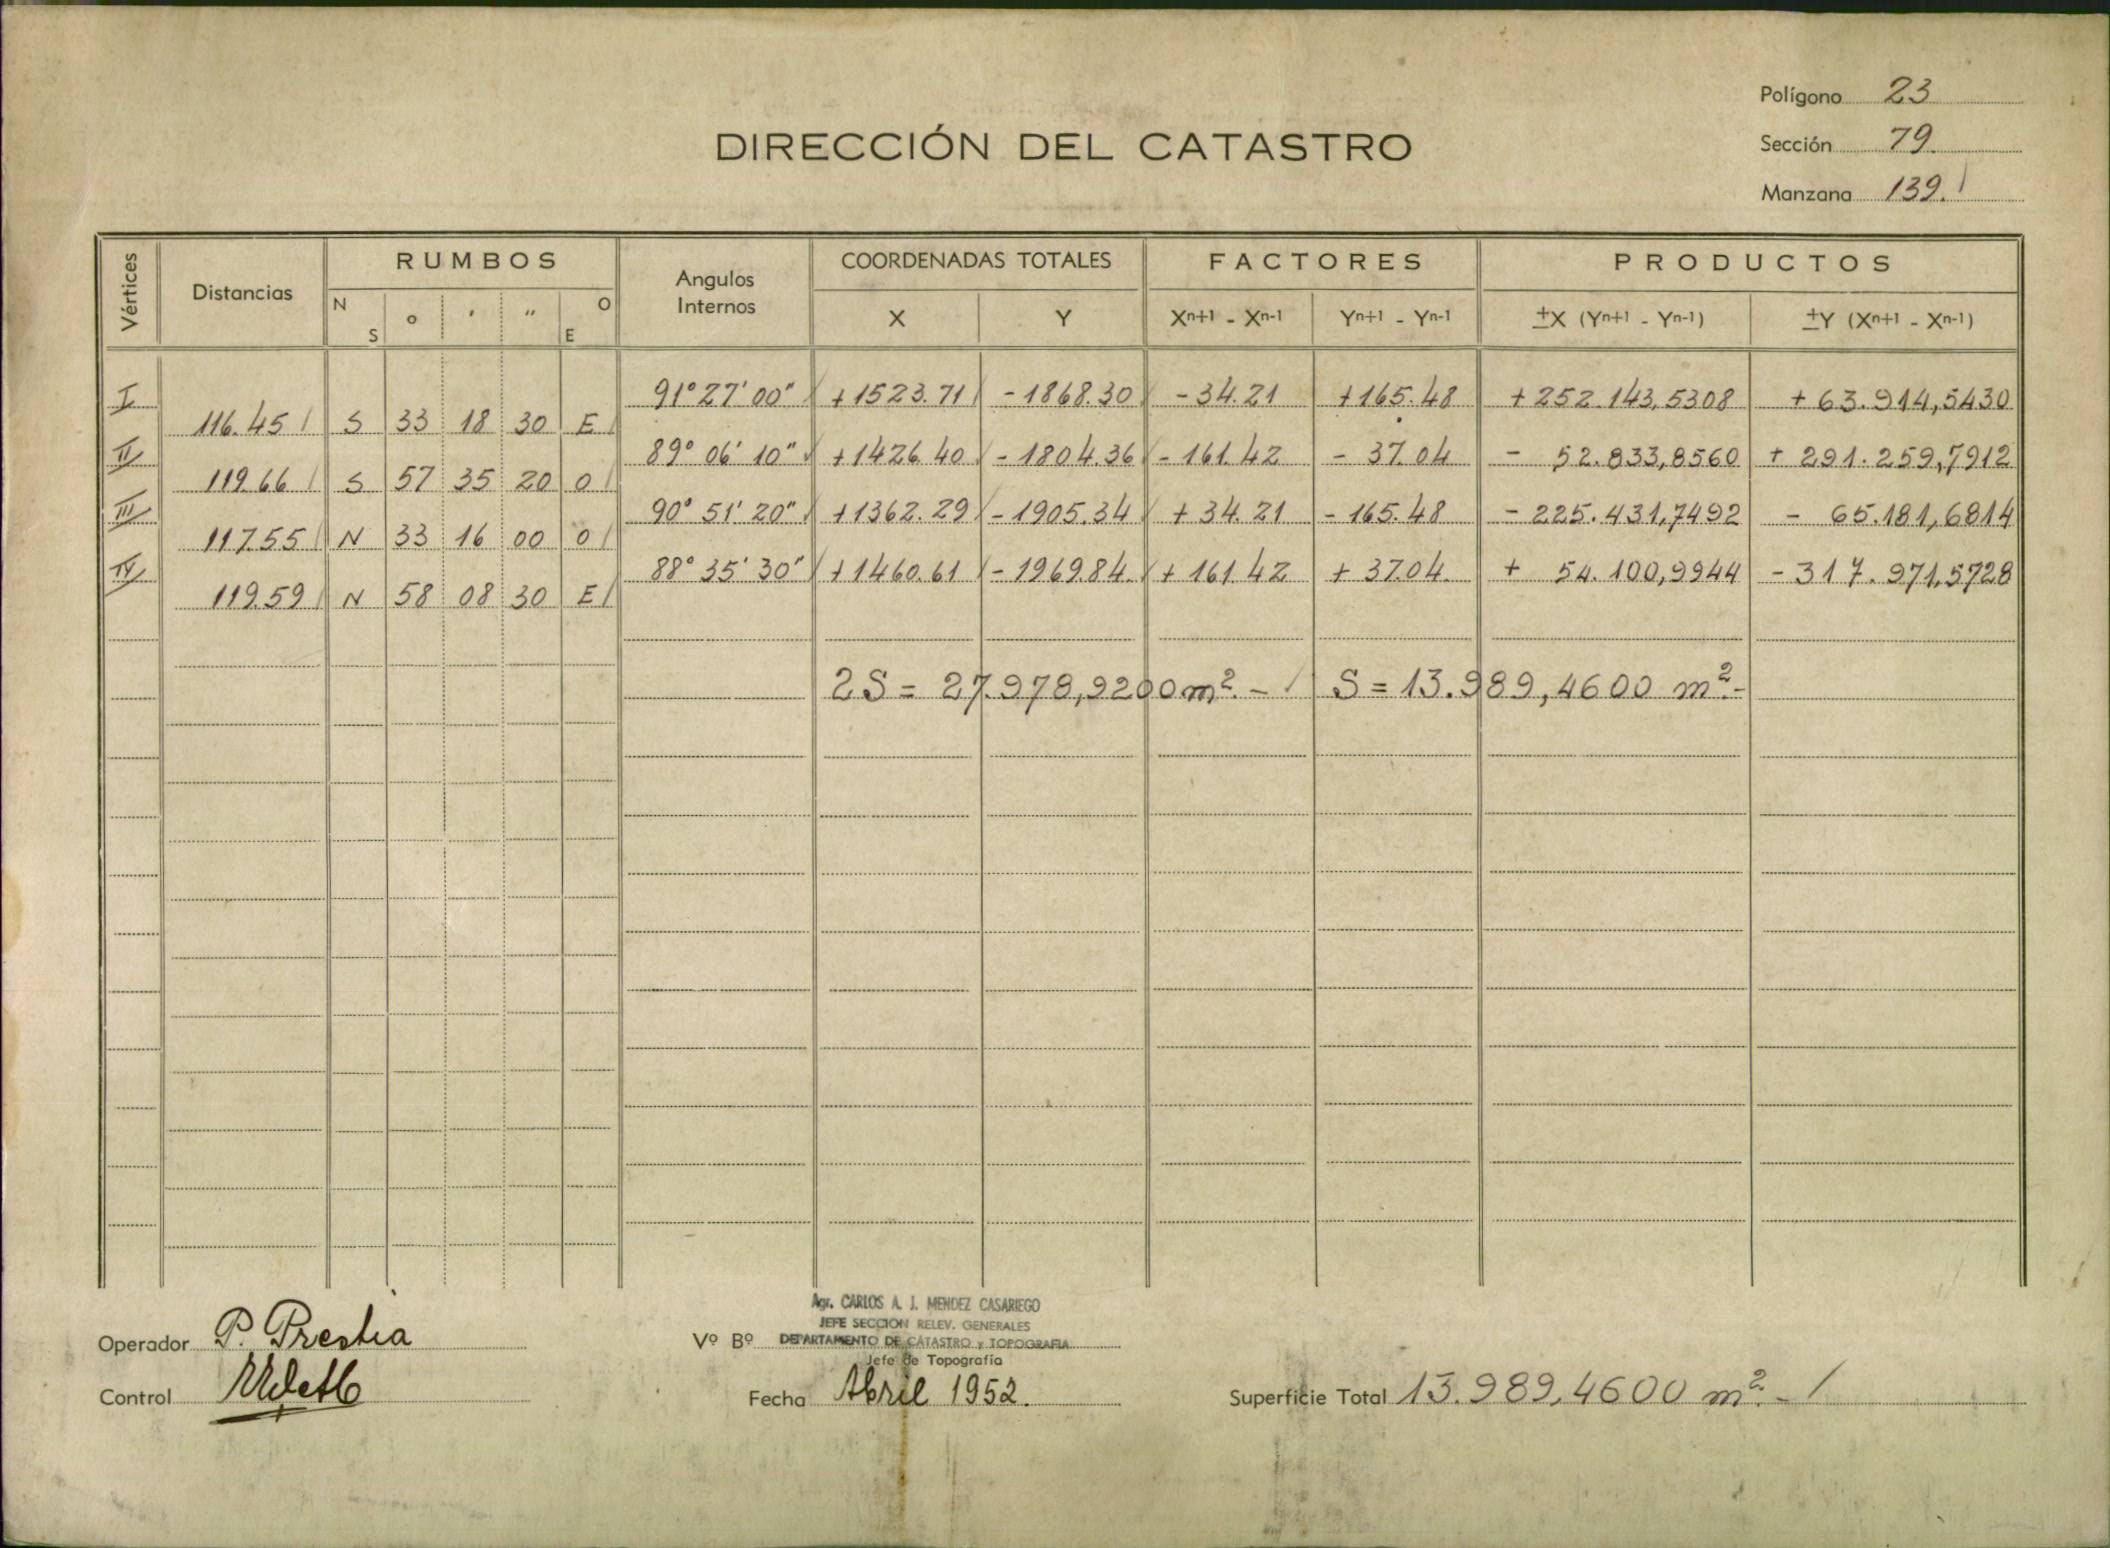 Polígono 23
DIRECCIÓN DEL CATASTRO
Sección 79.
Manzana 139.
Vértices Distancias RUMBOS Angulos Internos COORDENADAS TOTALES FACTORES PRODUCTOS
N S o ' " O E X Y Xn+1 - Xn-1 Yn+1 - Yn-1 ±X (Yn+1 - Yn-1) ±Y (Xn+1 - Xn-1)
I 91° 27' 00" +1523.71 -1868.30 -34.21 +165.48 +252.143,5308 +63.914,5430
116.45 S 33 18 30 E
II 89° 06' 10" +1426.40 -1804.36 -161.42 -37.04 -52.833,8560 +291.259,7912
119.66 S 57 35 20 O
III 90° 51' 20" +1362.29 -1905.34 +34.21 -165.48 -225.431,7492 -65.181,6814
117.55 N 33 16 00 O
IV 88° 35' 30" +1460.61 -1969.84. +161.42 +37.04. +54.100,9944 -317.971,5728
119.59 N 58 08 30 E
2S = 27.978,9200 m². - S = 13.989,4600 m².-
Agr. CARLOS A. J. MENDEZ CASARIEGO
JEFE SECCION RELEV. GENERALES
Operador P. Prestia Vº Bº DEPARTAMENTO DE CATASTRO y TOPOGRAFIA
Jefe de Topografía
Control Fecha Abril 1952. Superficie Total 13.989,4600 m². -